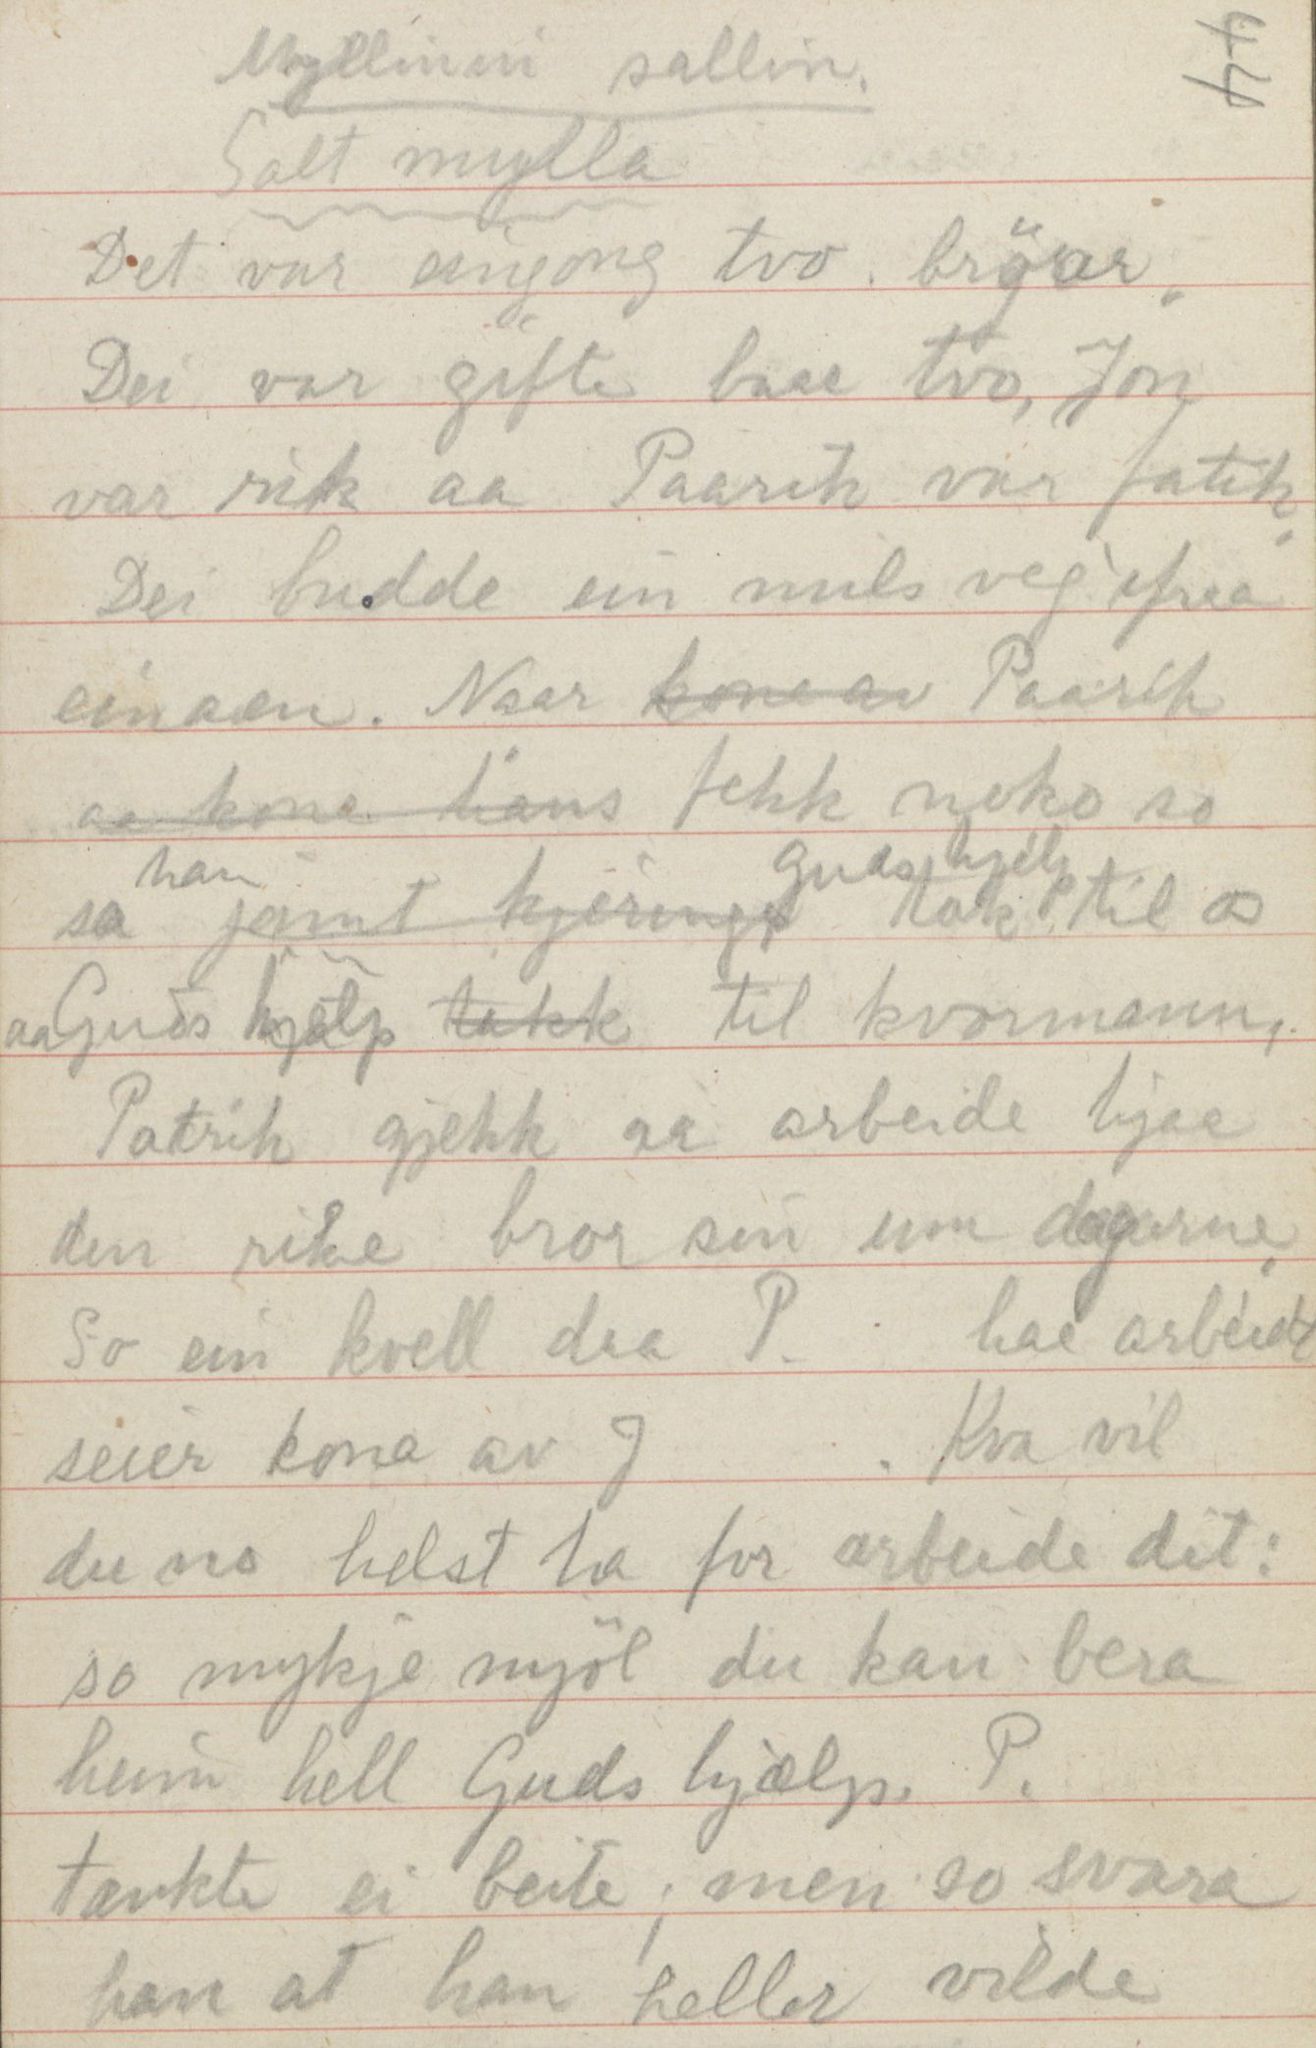 44
Myllinin sallin.
Salt mylla
Det var eingong tvo bröar.
Dei var gifte baae tvo, Jon
var rik aa Paarik var fatik.
Dei budde ein mils veg ifraa
einaen. Naar kone av Paarik
aa kona hans fekk noko so
sa han jamt kjeringa Guds hjelp tak til os
aa Guds hjælp takk til kvormann,
Patrik gjekk aa arbeide hjaa
den rike bror sin um dagarne.
So ein kvell daa P. hae arbeidt
seier kona av J. Kva vil
du no helst ha for arbeide dit:
so mykje mjöl du kan bera
heim hell Guds hjælp. P.
tenkte ei beite; men so svara
han at han heller vilde